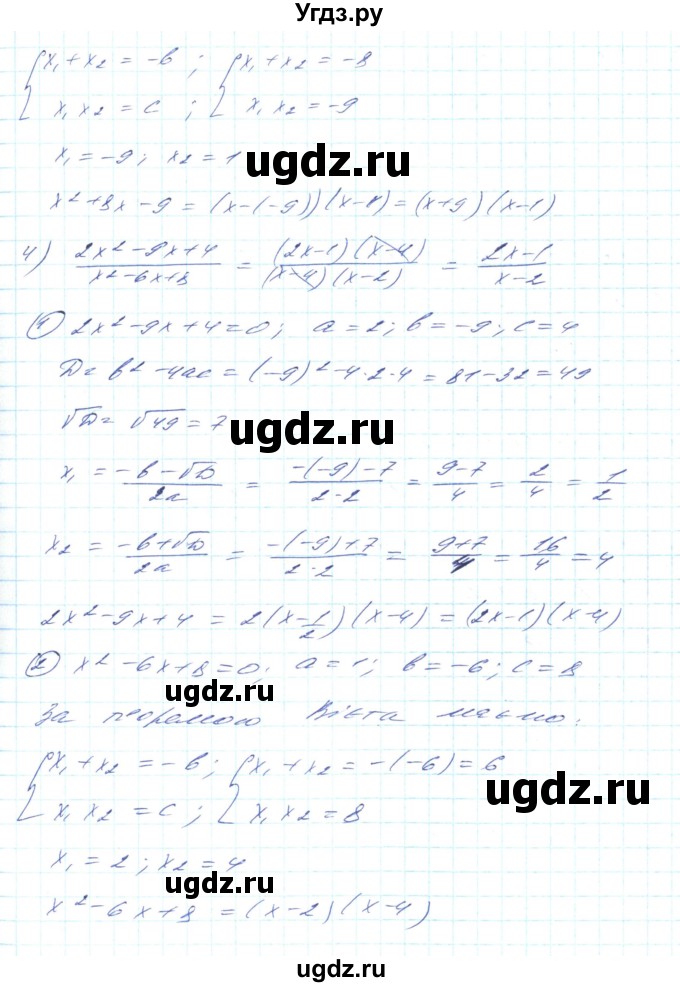 Угдз.ру
{x₁+x₂ = -b ; {x₁+x₂ = -8
x₁x₂ = c ; x₁x₂ = -9
x₁ = -9; x₂ = 1
ugdz.ru
x²+8x-9 = (x-(-9))(x-1) = (x+9)(x-1)
4) (2x²-9x+4)/(x²-6x+8) = ((2x-1)(x-4))/((x-4)(x-2)) = (2x-1)/(x-2)
① 2x²-9x+4=0; a=2; b=-9; c=4
D = b²-4ac = (-9)²-4·2·4 = 81-32 = 49
√D = √49 = 7
ugdz.ru
x₁ = (-b-√D)/2a = (-(-9)-7)/(2·2) = (9-7)/4 = 2/4 = 1/2
x₂ = (-b+√D)/2a = (-(-9)+7)/(2·2) = (9+7)/4 = 16/4 = 4
2x²-9x+4 = 2(x-1/2)(x-4) = (2x-1)(x-4)
② x²-6x+8=0; a=1; b=-6; c=8
ugdz.ru
За теоремою Вієта маємо:
{x₁+x₂ = -b; {x₁+x₂ = -(-6) = 6
x₁x₂ = c ; x₁x₂ = 8
ugdz.ru
x₁ = 2 ; x₂ = 4
ugdz.ru
x²-6x+8 = (x-2)(x-4)
ugdz.ru